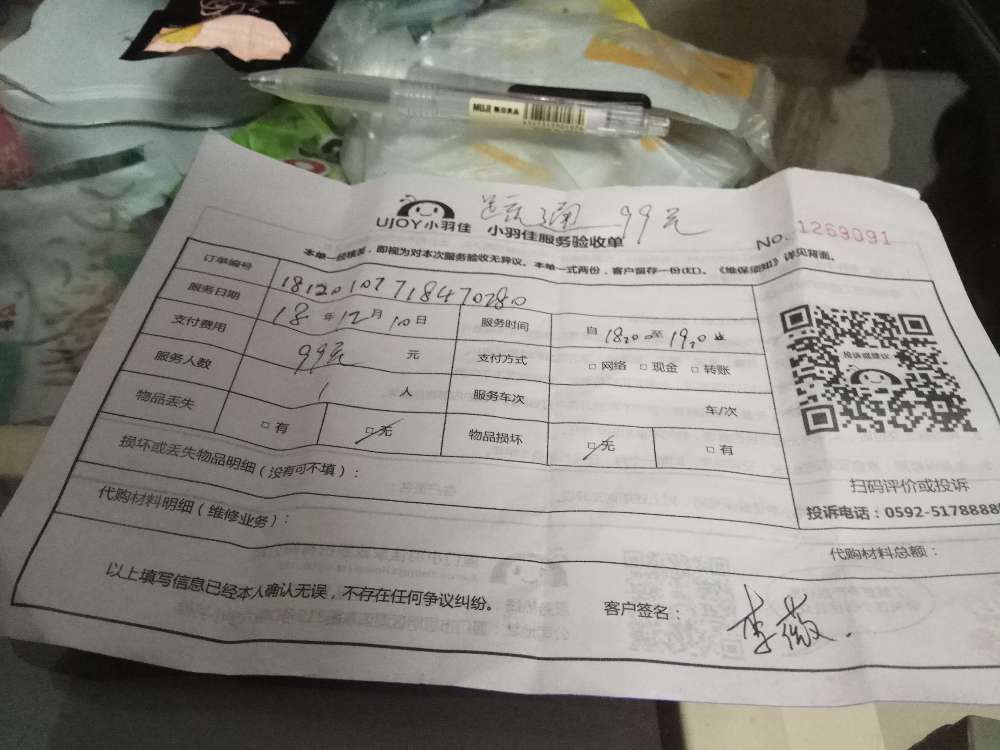 MUJI 無印良品
疏通 99元
UJOY小羽佳 小羽佳服务验收单
No. 1269091
本单一经核发，即视为对本次服务验收无异议。本单一式两份，客户留存一份(红)。《维保须知》详见背面。
订单编号 18120107718470280
服务日期 18 年 12 月 10 日 服务时间 自 1820 至 1920 止
支付费用 99元 元 支付方式 □ 网络 □ 现金 □ 转账
服务人数 1 人 服务车次 车/次
物品丢失 □ 有 □ 无 物品损坏 □ 无 □ 有
损坏或丢失物品明细（没有可不填）：
代购材料明细（维修业务）：
代购材料总额：
投诉或建议
扫码评价或投诉
投诉电话：0592-5178888
以上填写信息已经本人确认无误，不存在任何争议纠纷。
客户签名： 李薇